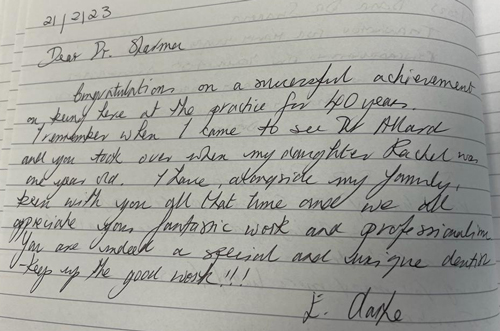 21/2/23
Dear Dr. Sharma
Congratulations on a successful achievement
on being here at the practice for 40 years.
I remember when I came to see Dr Allard
and you took over when my daughter Rachel was
one year old. I have, alongside my family,
been with you all that time and we all
appreciate your fantastic work and professionalism
You are indeed a special and unique dentist
keep up the good work!!!
E. Clarke